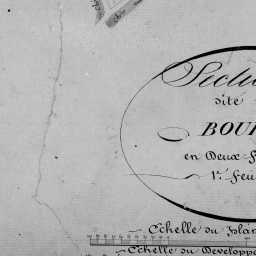 Section
dite
BOU
en Deux F
1re Feu
Echelle du Plan
Echelle du Developpe